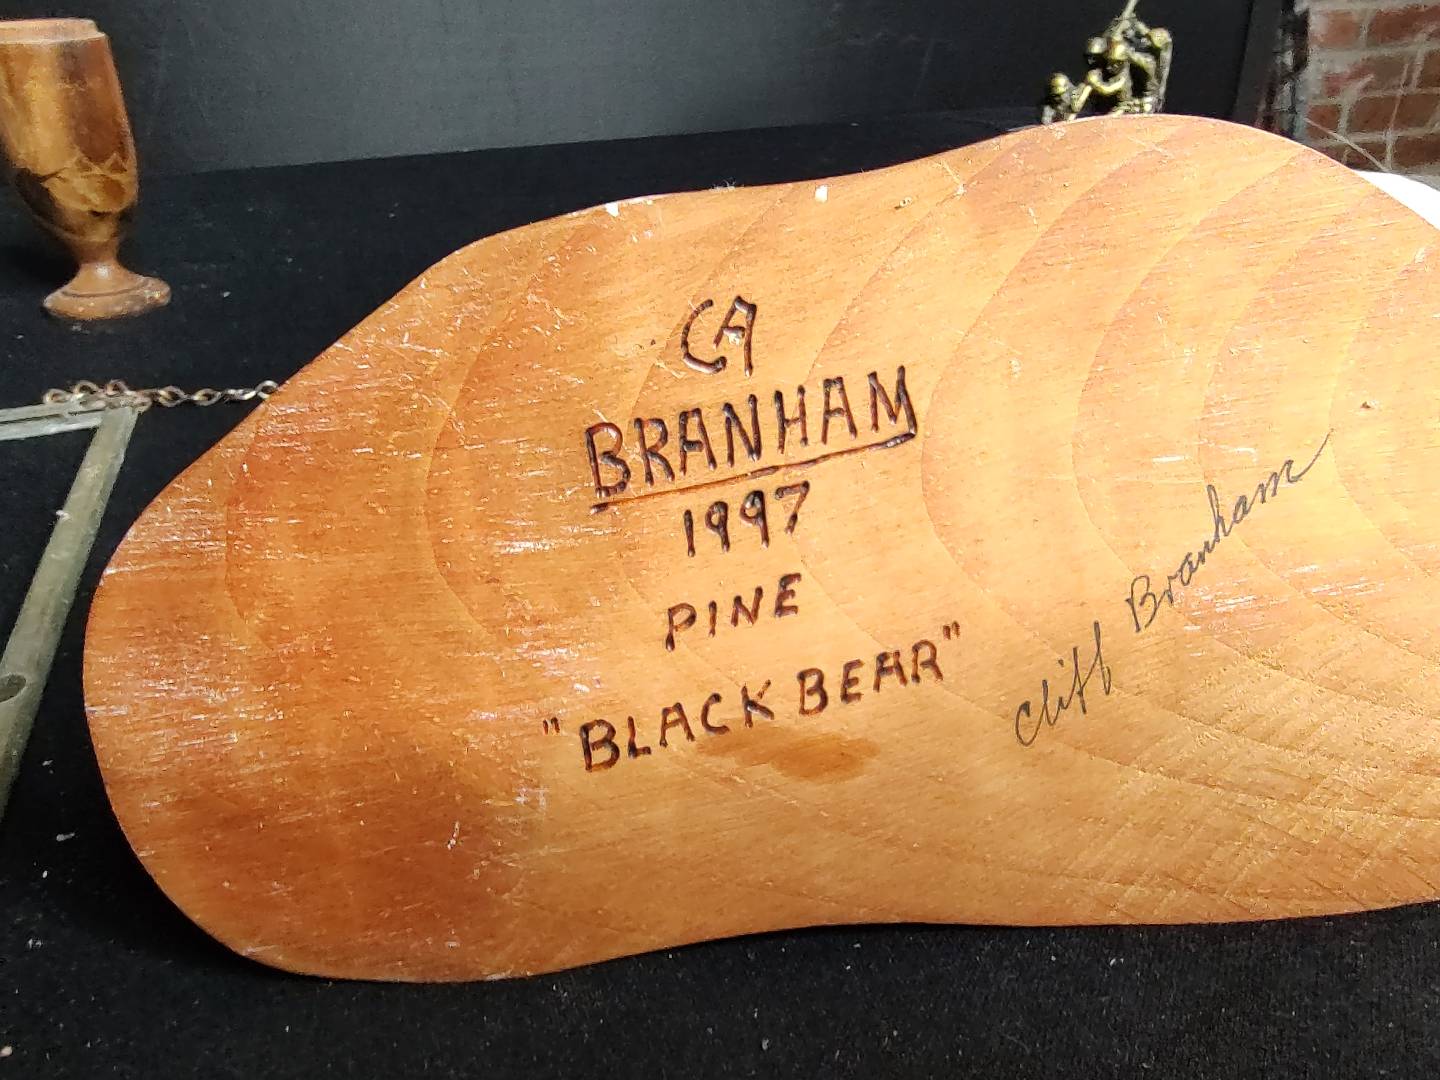 CA
BRANHAM
1997
PINE
"BLACK BEAR"
Cliff Branham